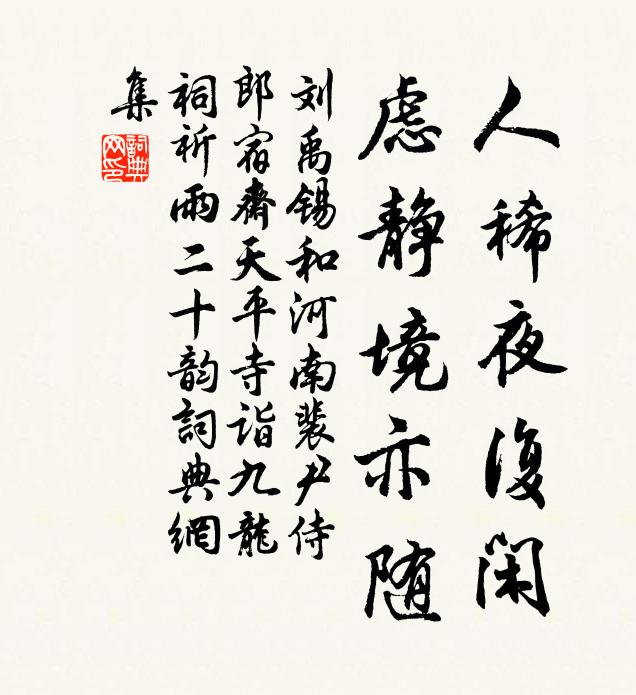 人稀夜復閑
慮静境亦随
刘禹锡和河南裴尹侍
郎宿齋天平寺诣九龍
祠祈雨二十韵詞典網
集
詞典
网印